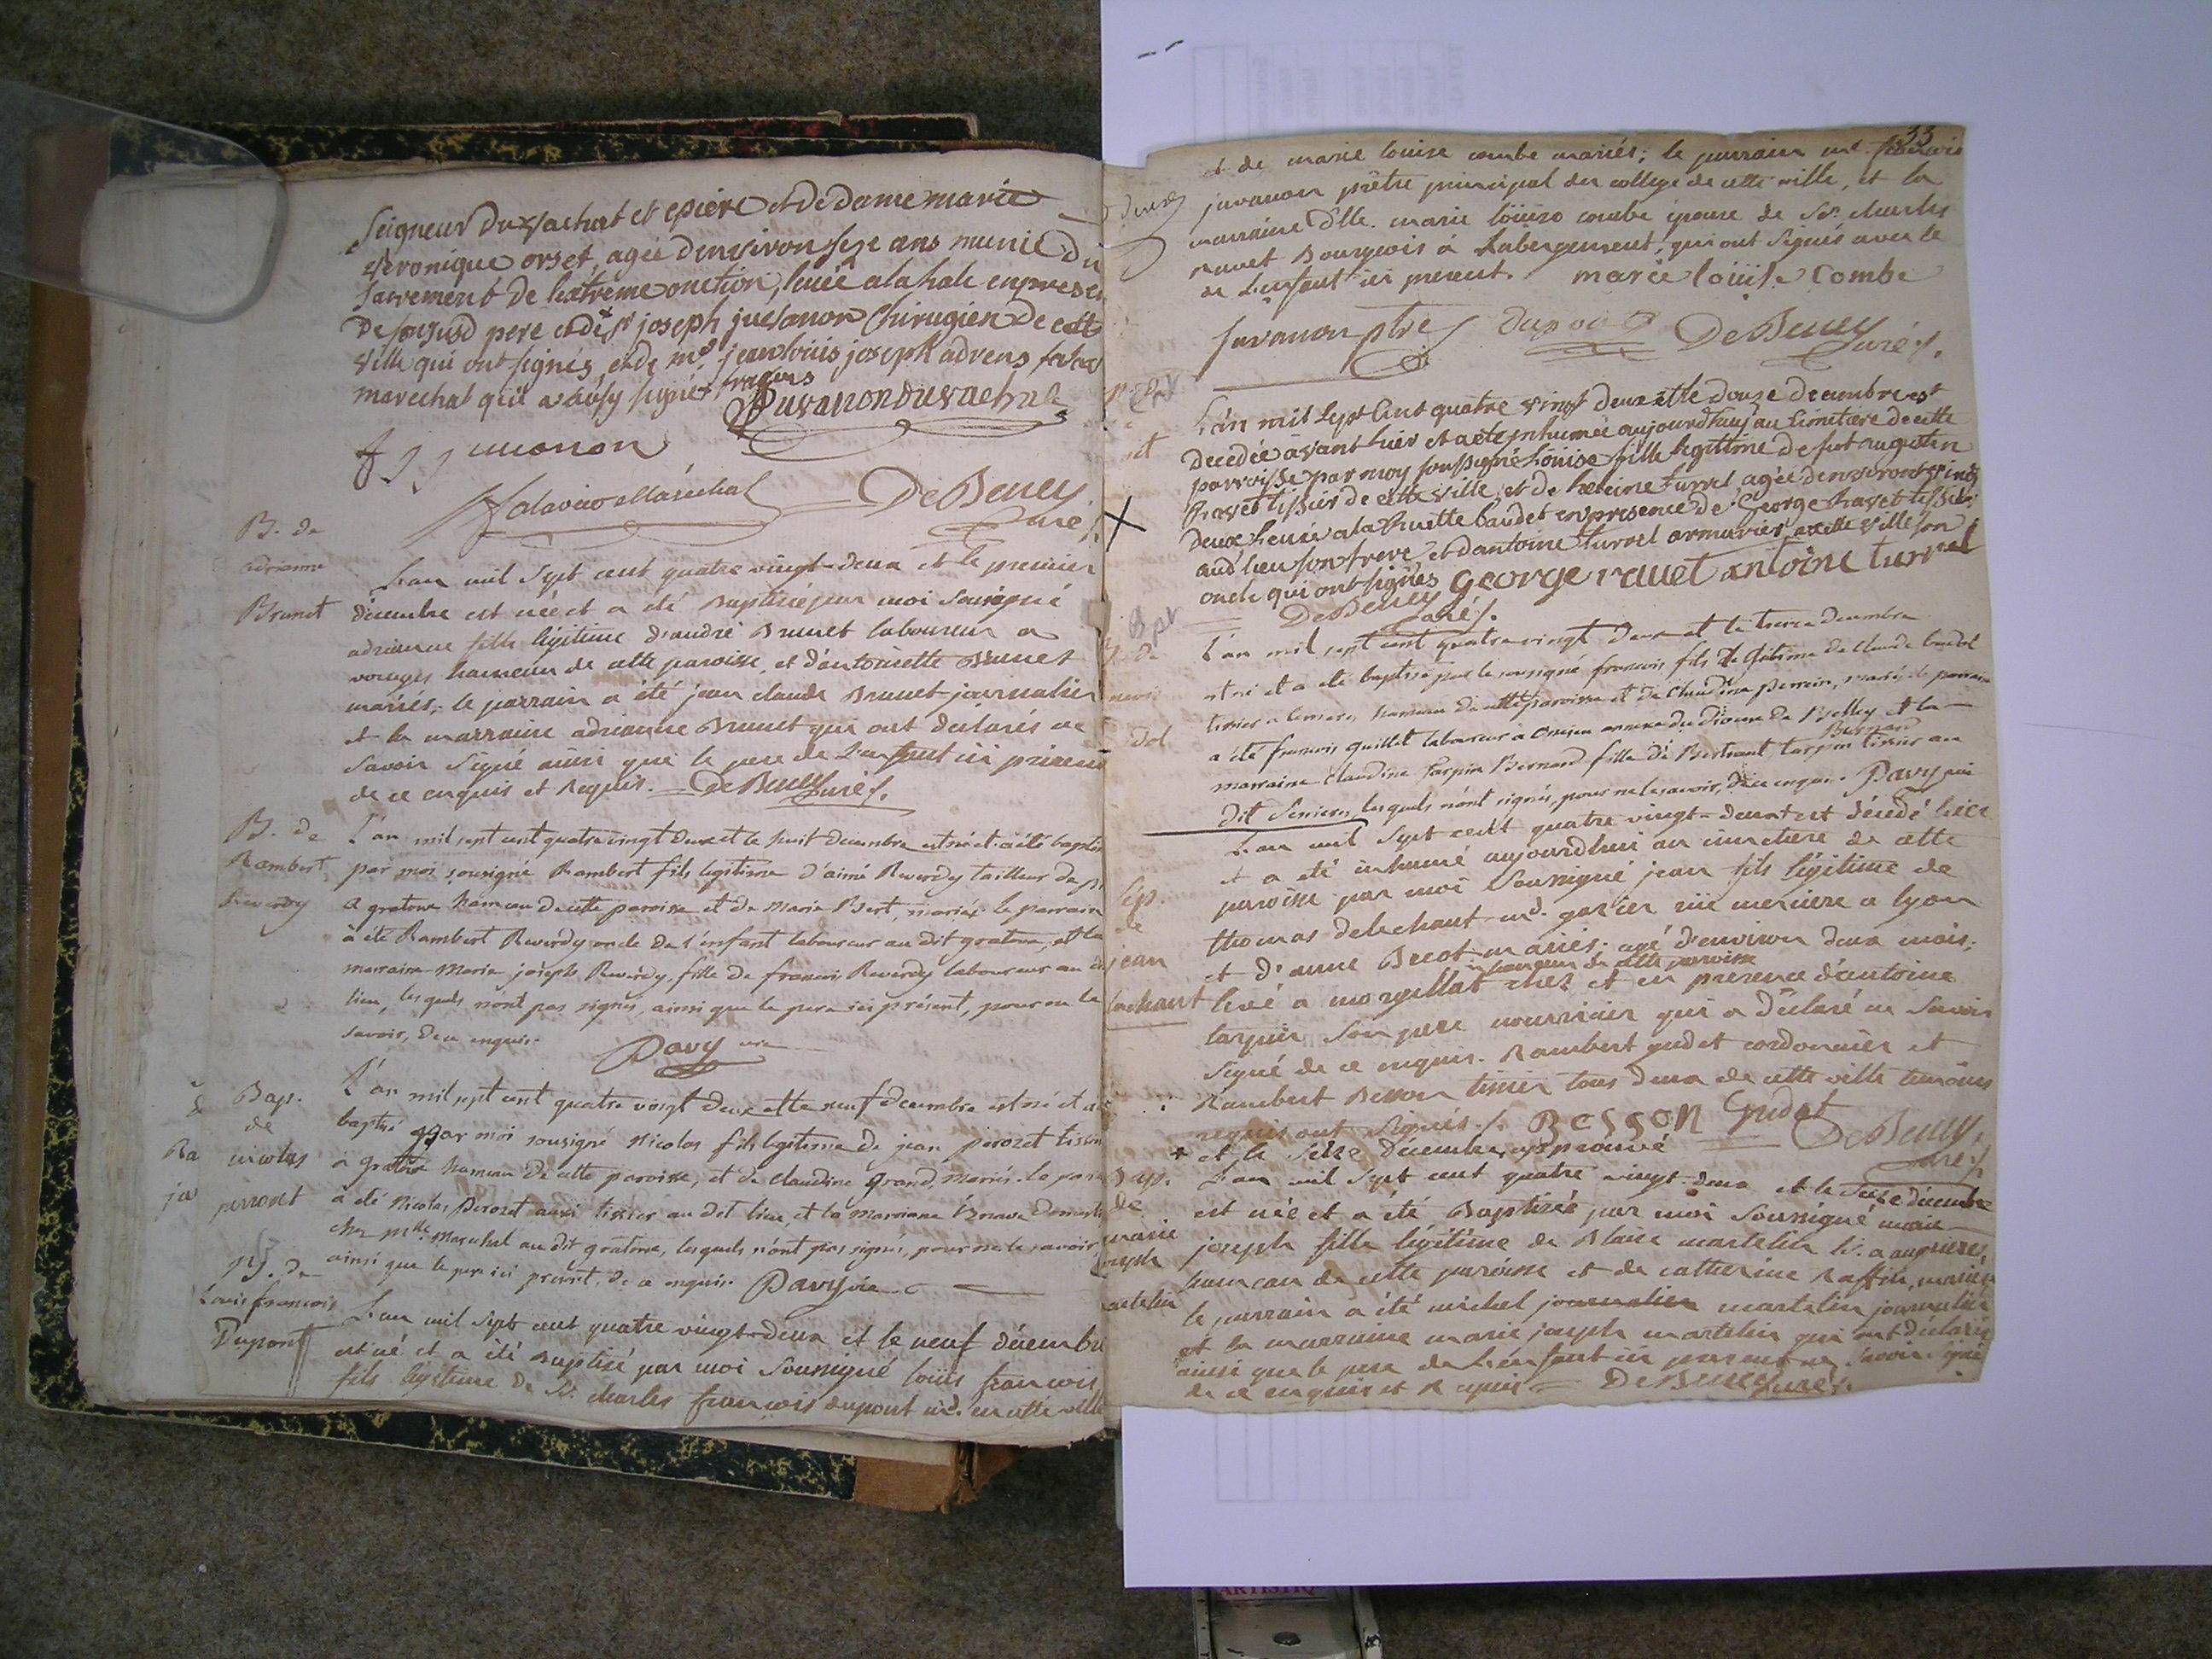 Seigneur du vachat et epiere et de dame marie
veronique orset, agée denviron seze ans munie du
sacrement de lextreme onction, levée a la hale en presen
De soususd pere et de sr joseph juvanon Chirugien De cette
ville qui ont signés, et de mr jean louis joseph advens
marechal qui a aussy signé
Juvanon du vachat
juvanon
Maréchal DeBeney
Curé
B. de
adrianne
Brunet
L'an mil sept cent quatre vingt-deux et le premier
décembre est née et a été Baptisée par moi Sousigné
adrianne fille légitime d'andré Brunet laboureur a
vorages hameau de cette paroisse, et d'antoinette Brunet
mariés; le parrain a été jean claude Brunet journalier
et la marraine adrianne Brunet qui ont déclarés ne
savoir signé aussi que le pere de L'enfant ici présent
de ce enquis et Requis. DeBeney curé
B. de
Rambert
Reverdy
L'an mil sept cent quatre vingt deux et le huit decembre est né et a été baptis
par moi sousigné Rambert fils legitime d'aimé Reverdy tailleur de pi
a gratoux hameau de cette paroisse et de Marie Bert, mariés. Le parrain
a été Rambert Reverdy oncle de l'enfant laboureur au dit gratoux, et la
marraine Marie joseph Reverdy, fille de francois Reverdy laboureur au d
lieu, lesquels n'ont pas signés, ainsi que le pere ici présent, pour ne le
savoir, de ce enquis.
Davy vic
Bap.
de
nicolas
perozet
L'an mil sept cent quatre vingt deux et le neuf decembre est né et a
baptisé par moi sousigné Nicolas fils legitime de jean perozet tissi
a gratoux hameau de cette paroisse, et de claudine Grand, mariés. le par
a été Nicolas Perozet aussi tissier au dit lieu, et la marraine
chez Marechal au dit gratoux, lesquels n'ont pas signés, pour ne le savoir,
ainsi que le pere ici présent, de ce enquis. Davy vic
B. de
Louis francois
Dupont
L'an mil sept cent quatre vingt-deux et le neuf décembr
est né et a été Baptisé par moi Sousigné loüis francois
fils légitime de Sr. charles francois dupont md. en cette ville
33
et de marie louise combe mariés; le parrain mr francois
juvanon prêtre principal du college de cette ville, et la
marraine dlle. marie loüise combe épouse de Sr. charles
ravet Bourgeois à Labergement, qui ont signés avec le
de L'enfant ici présent. marie loüise Combe
Juvanon ptre dupont DeBeney
curé
L'an mil sept cent quatre vingt deux et le douze decembre est
decedée avant hier et a eté inhumée aujourdhuy au Cimetiere de cette
parroisse par moy soussigné Loüise fille legitime de fut augustin
Ravet tissier de cette ville, et de heleine turrel, agée denviron vingt
deux, levée a la ruette baudet en presence de George Ravet tissier
aud lieu son frere, et dantoine turrel armurier en cette ville son
oncle qui ont signés George ravet antoine turrel
DeBeney curé
L'an mil sept cent quatre vingt deux et le treize decembre
est né et a été baptisé par le sousigné francois fils legitime de claude baudet
tissier a hameau de cette paroisse et de claudine perrin, mariés. le parrain
a été francois quillet laboureur a annexe du diocese de Belley et la
Bernard
marraine claudine tarpin Bernard fille de Bertrand tarpin tissier au
dit, lesquels n'ont signés, pour ne le savoir, de ce enquis. Davy vic
Sep.
de
jean
L'an mil sept cent quatre vingt-deux est décédé hier
et a été inhumé aujourdhui au cimetiere de cette
paroisse par moi Sousigné jean fils légitime de
thomas delechaut md. gazier rüe merciere a lyon
et d'anne Brcot mariés; agé d'environ deux mois;
hameau de cette paroisse
levé a morgellat chez et en presence d'antoine
tarpin son pere nourricier qui a déclaré ne Savoir
signé de ce enquis. Rambert gudet cordonnier et
Rambert Besson tissier tous deux de cette ville temoins
requis ont signés. BESSON Gudet DeBeney
curé
+ et le seize décembre approuvé
Bap.
de
marie
joseph
martelin
L'an mil Sept cent quatre vingt-deux et le Seize décembre
est née et a été Baptizée par moi Sousigné marie
joseph fille légitime de Blaise martelin
hameau de cette paroisse et de catherine Raffin, mariés
le parrain a été michel journalier martelin journalier
et la marraine marie joseph martelin qui ont déclarés
ainsi que le pere de L'enfant ici present ne savoir signé
de ce enquis et Requis DeBeney curé